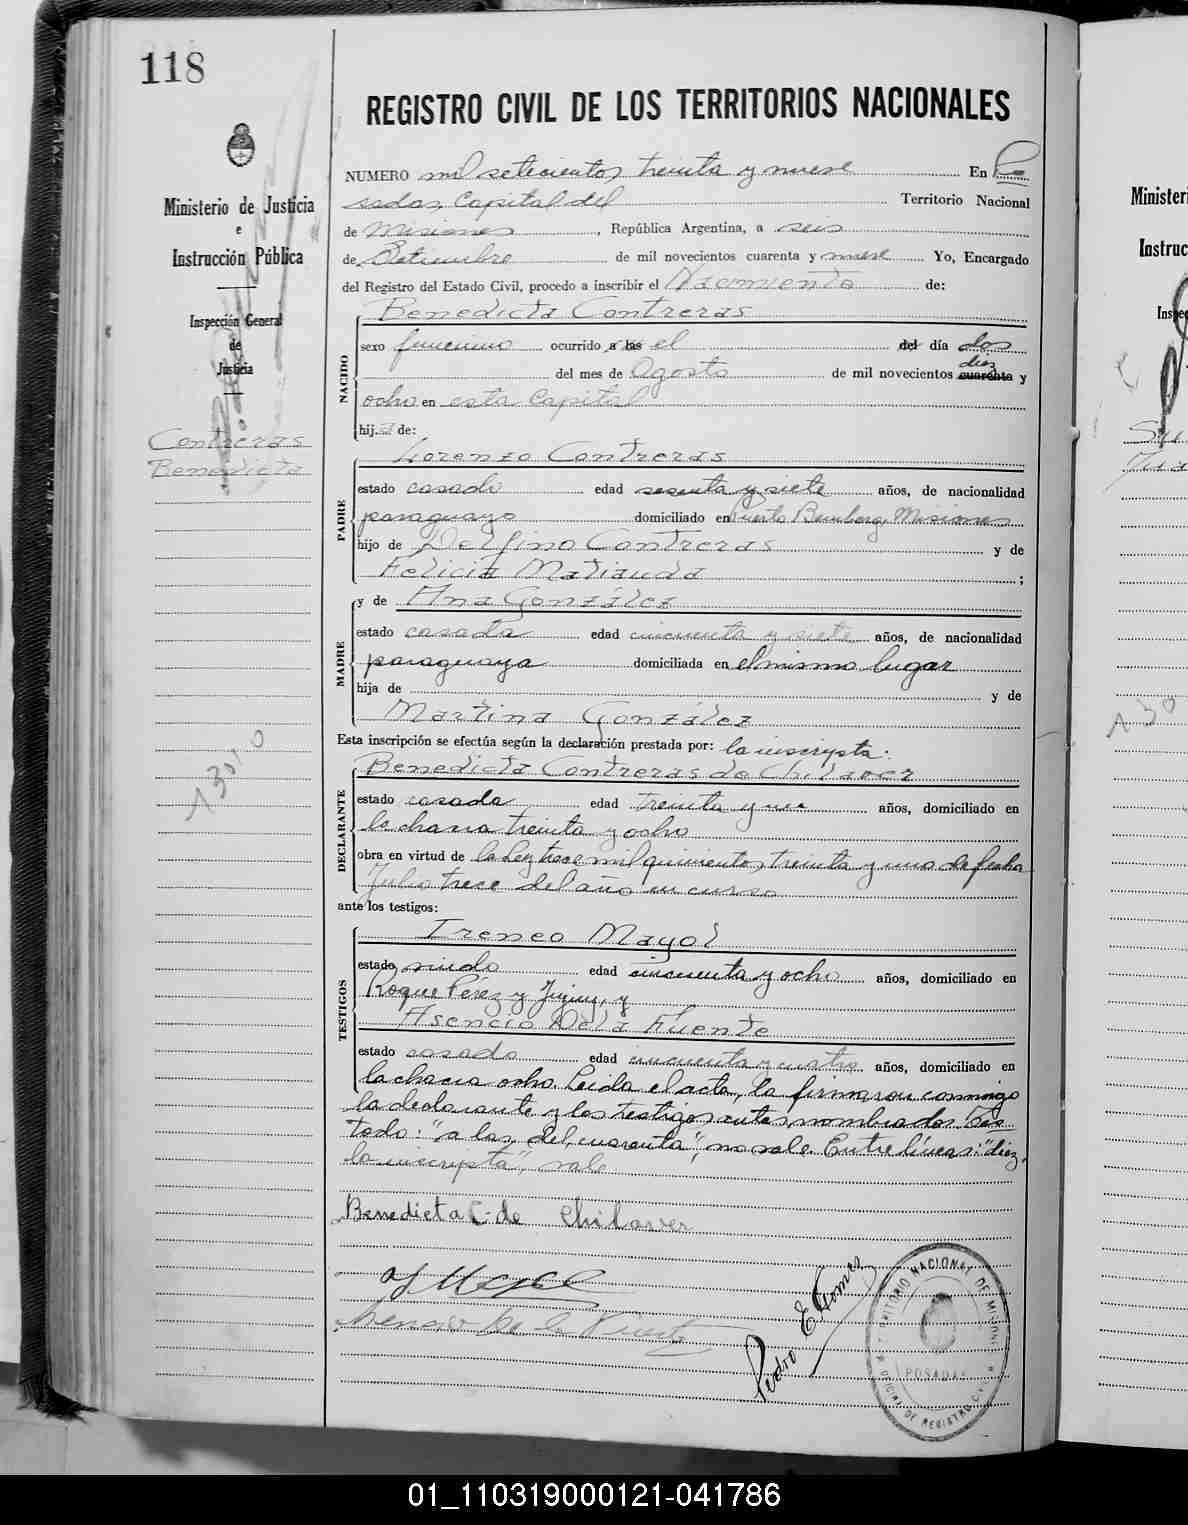 118
REGISTRO CIVIL DE LOS TERRITORIOS NACIONALES
Ministerio de Justicia
e
Instrucción Pública
Inspección General
de
Justicia
Contreras
Benedicta
NUMERO mil setecientos treinta y nueve En Po
sadas, Capital del Territorio Nacional
de Misiones, República Argentina, a seis
de Setiembre de mil novecientos cuarenta y nueve Yo, Encargado
del Registro del Estado Civil, procedo a inscribir el Nacimiento de:
NACIDO
Benedicta Contreras
sexo femenino ocurrido a las el del día dos
diez
del mes de Agosto de mil novecientos cuarenta y
ocho en esta Capital
hija de:
PADRE
Lorenzo Contreras
estado casado edad sesenta y siete años, de nacionalidad
paraguayo domiciliado en Puerto Bemberg, Misiones
hijo de Delfino Contreras y de
Felicia Matiauda ;
MADRE
y de Ana González
estado casada edad cincuenta y siete años, de nacionalidad
paraguaya domiciliada en el mismo lugar
hija de y de
Martina González
Esta inscripción se efectúa según la declaración prestada por: la inscripta:
DECLARANTE
Benedicta Contreras de Chilaver
estado casada edad treinta y un años, domiciliado en
la chacra treinta y ocho
obra en virtud de la Ley trece mil quinientos treinta y uno de fecha
Julio trece del año en curso
ante los testigos:
TESTIGOS
Ireneo Mayol
estado viudo edad cincuenta y ocho años, domiciliado en
Roque Pérez y Jujuy, y
Asencio De la Fuente
estado casado edad cincuenta y cuatro años, domiciliado en
la chacra ocho. Leida el acta, la firmaron conmigo
la declarante y los testigos antes nombrados. Tes
tado: "a las, del, cuarenta", no vale. Entre líneas: "diez,
la inscripta", vale
Benedicta C. de Chilaver
Asencio De la Fuente
Pedro E. Gomez
TERRITORIO NACIONAL DE MISIONES
POSADAS
OFICIAL DE REGISTRO CIVIL
Ministeri
Instruc
Inspec
01_110319000121-041786